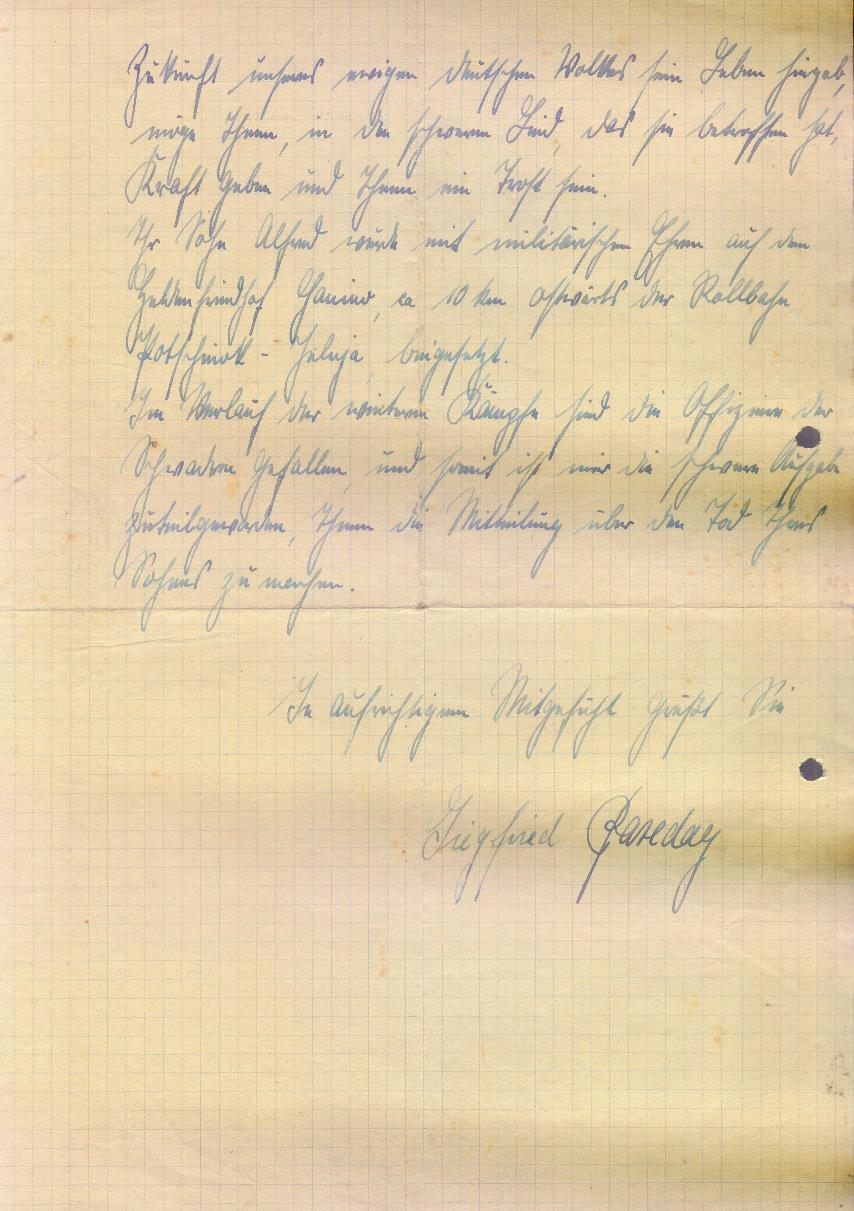 Zukunft unseres ewigen deutschen Volkes sein Leben hingab,
möge Ihnen, in den schweren Leid, das sie betroffen hat,
Kraft geben und Ihnen ein Trost sein.
Ihr Sohn Alfred wurde mit militärischen Ehren auf dem
Heldenfriedhof Hanino, ca 10 km ostwärts der Rollbahn
Potschinok - Jelnja, beigesetzt.
Im Verlauf der weiteren Kämpfe sind die Offiziere der
Schwadron gefallen, und somit ist mir die schwere Aufgabe
zuteilgeworden, Ihnen die Mitteilung über den Tod Ihres
Sohnes zu machen.
In aufrichtigem Mitgefühl grüßt Sie
Siegfried